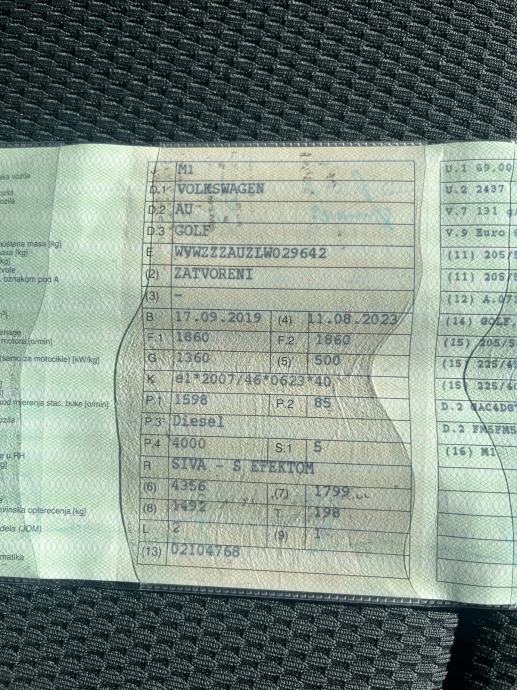 J M1
D.1 VOLKSWAGEN
D.2 AU
D.3 GOLF
E WVWZZZAUZLW029642
(2) ZATVORENI
(3) -
B 17.09.2019 (4) 11.08.2023
F.1 1860 F.2 1860
G 1360 (5) 500
K e1*2007/46*0623*40
P.1 1598 P.2 85
P.3 Diesel
P.4 4000 S.1 5
R SIVA - S EFEKTOM
(6) 4356 (7) 1799
(8) 1492 T 198
L 2 (9) 1
(13) 02104768
masa [kg]
asa [kg]
kg]
oznakom pod A
motora [o/min]
(samo za motocikle) [kW/kg]
mjerenja stac. buke [o/min]
u RH
opterećenja [kg]
(JOM)
U.1 69,00
U.2 2437
V.7 131
V.9 Euro
(11) 205/
(11) 205/
(12) A.07
(14) GOLF,
(15) 205/5
(15) 225/4
(15) 225/4
D.2
D.2
(16) M1